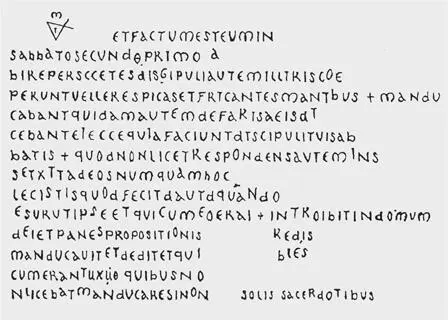 ETFACTUMESTEUMIN
SABBATOSECUNDOPRIMO A
BIREPERSCCETESDISGIPULIAUTEMILLTRISCOE
PERUNTVELLERESPICASETFRTCANTESMANTBUS + MANDU
CABANTQUIDAMAUTEMDEFARISAEISDT
CEBANTEIECCEQUIAFACIUNTDTSCIPULITUISAB
BATIS + QUODNONLICETRESPONDENSAUTEMINS
SETXTTADEOSNUMQUAMHOC
LECISTISQUODFECITDAUTDQUANDO
ESURUTIPSEETQUICUMEOERAI + INTROIBITINDOMUM
DEIETPANESPROPOSITIONIS REDIS
MANDUCAUITETDEDITETQUI BLES
CUMERANTUXUO QUIBUSNO
NLICEBATMANDUCARESINON SOLIS SACERDOTIBUS